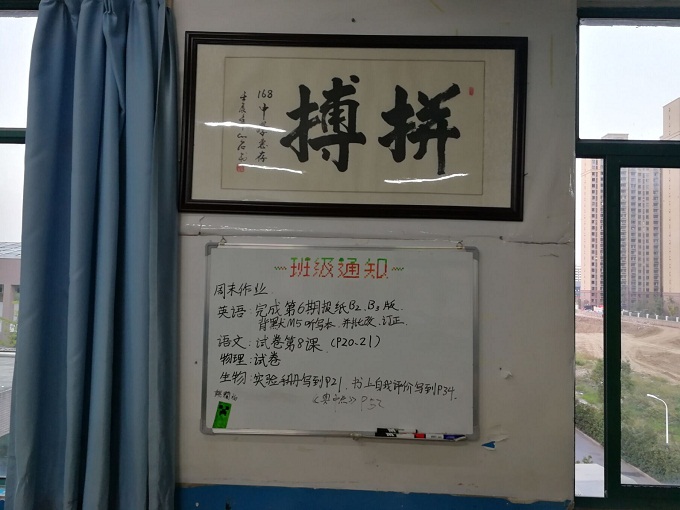 拼搏
168中学惠存
班级通知
周末作业
英语:完成第6期报纸B2、B3版
背默M5听写本,并批改、订正.
语文:试卷第8课(P20.21)
物理:试卷
生物:实验册写到P21、书上自我评价写到P34.
P52